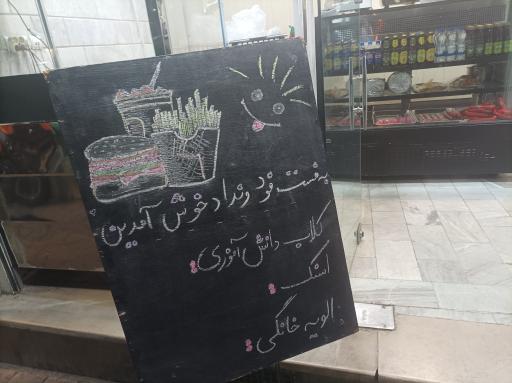 به فست فود ونداد خوش آمدین
کلاب دانش آموزی:
اسنک:
الویه خانگی: